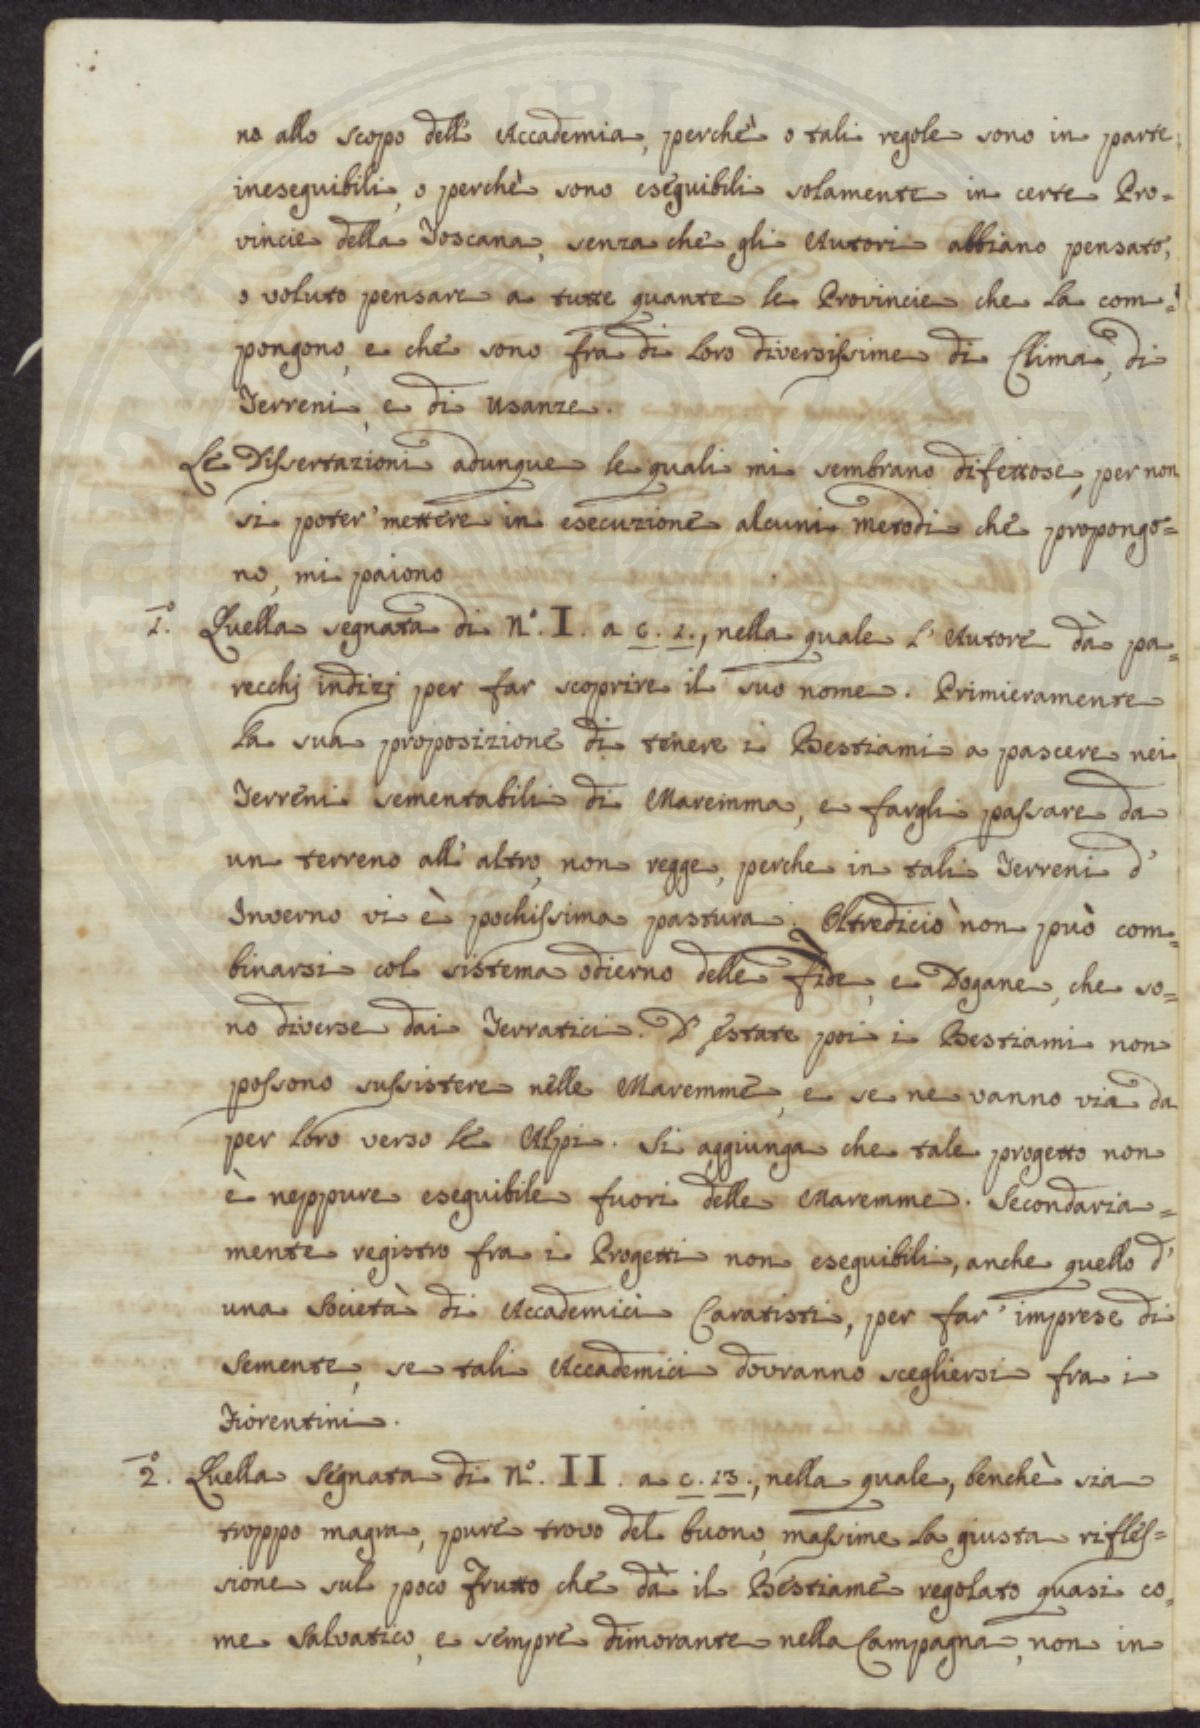 no allo scopo dell' Accademia, perchè o tali regole sono in parte
ineseguibili, o perchè sono eseguibili solamente in certe Pro=
vincie della Toscana, senza che gli Autori abbiano pensato,
o voluto pensare a tutte quante le Provincie che la com=
pongono, e che sono fra di loro diversissime di Clima, di
Terreni, e di usanze.
Le Dissertazioni adunque le quali mi sembrano difettose, per non
si poter' mettere in esecuzione alcuni metodi che propongo=
no, mi paiono
1.º Quella segnata di N.º I. a c. 1., nella quale l' Autore dà pa=
recchj indizj per far scoprire il suo nome. Primieramente
la sua proposizione di tenere i Bestiami a pascere nei
Terreni sementabili di Maremma, e fargli passare da
un terreno all' altro, non regge, perche in tali Terreni d'
Inverno vi è pochissima pastura. Oltrediciò non può com=
binarsi col sistema odierno delle fide, e Dogane, che so=
no diverse dai Terratici. D' estate poi i Bestiami non
possono sussistere nelle Maremme, e se ne vanno via da
per loro verso le Alpi. Si aggiunga che tale progetto non
è neppure eseguibile fuori delle Maremme. Secondaria=
mente registro fra i Progetti non eseguibili, anche quello d'
una Società di Accademici Caratisti, per far' imprese di
Semente, se tali Accademici dovranno scegliersi fra i
Fiorentini.
2.º Quella segnata di N.º II. a c. 13., nella quale, benchè sia
troppo magra, pure trovo del buono, massime la giusta rifles=
sione sul poco frutto che dà il Bestiame regolato quasi co=
me Salvatico, e sempre dimorante nella Campagna, non in